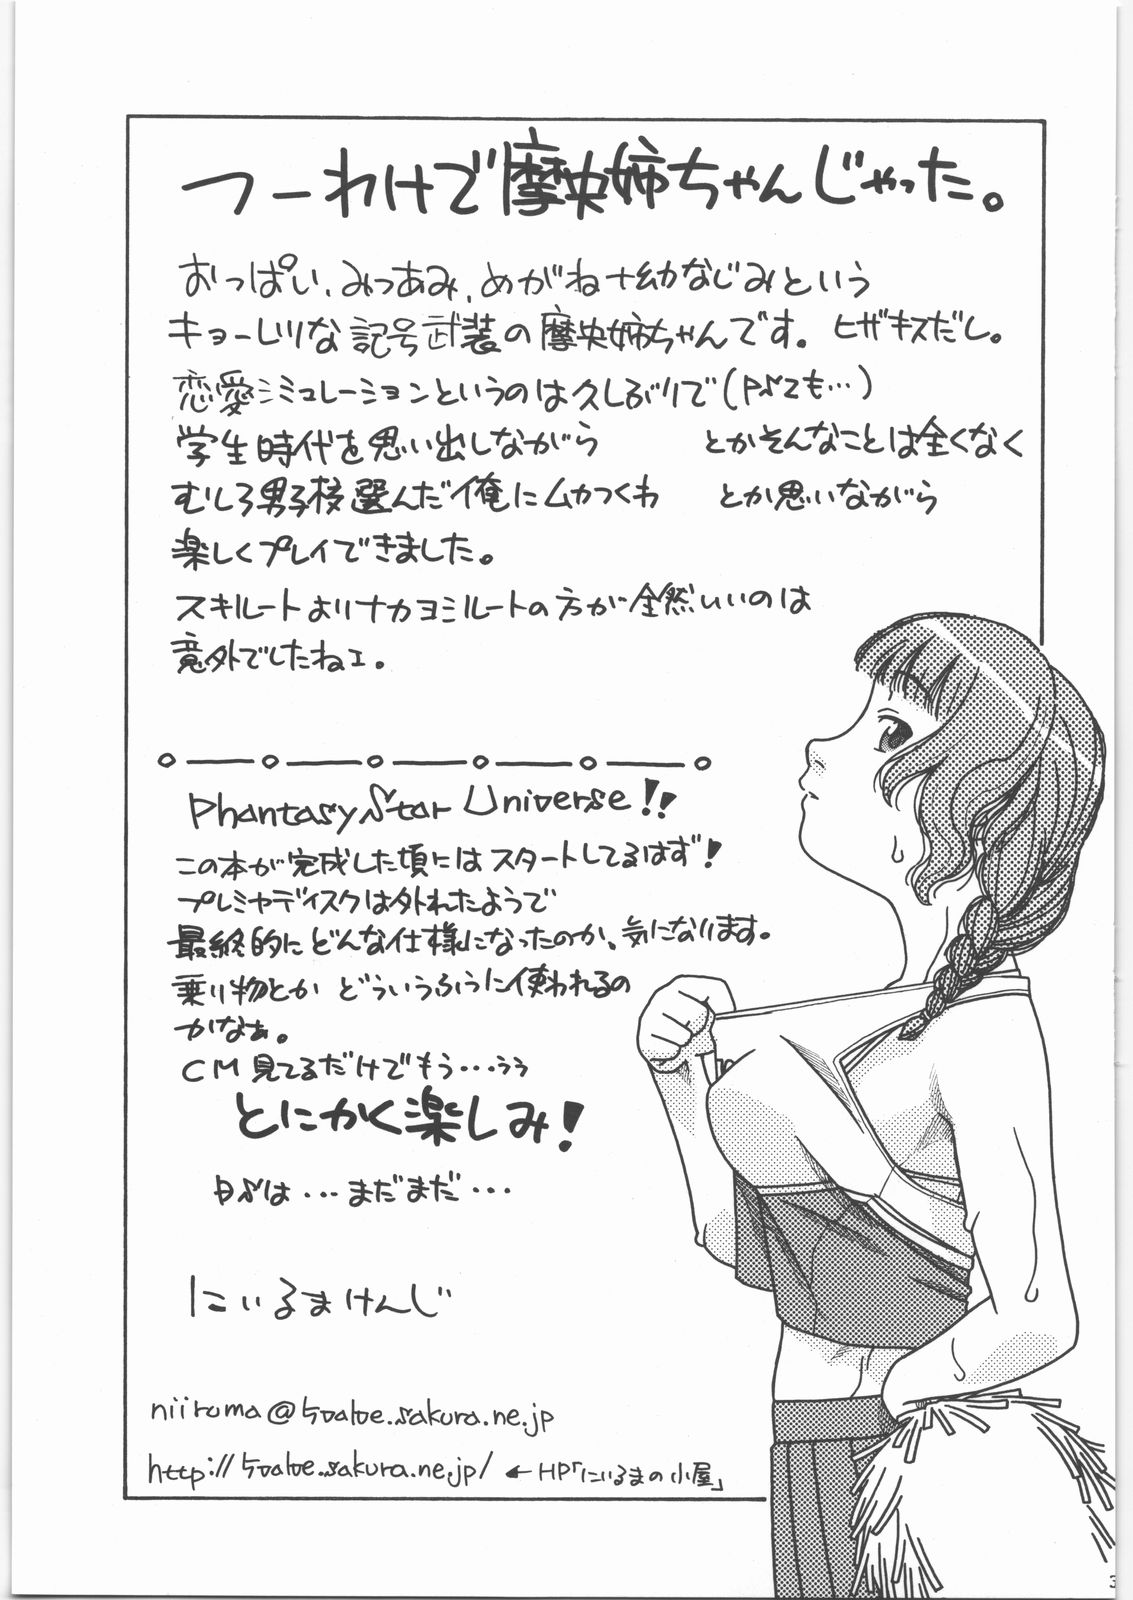 つーわけで摩央姉ちゃんじゃった。
おっぱい、みつあみ、めがね+幼なじみという
キョーレツな記号武装の摩央姉ちゃんです。ヒザキスだし。
恋愛シミュレーションというのは久しぶりで(PSZも…)
学生時代を思い出しながら とかそんなことは全くなく
むしろ男子校選んだ俺にムカつくわ とか思いながら
楽しくプレイできました。
スキルートよりナカヨシルートの方が全然いいのは
意外でしたねェ。
Phantasy Star Universe!!
この本が完成した頃にはスタートしてるはず!
プレミヤディスクは外れたようで
最終的にどんな仕様になったのか、気になります。
乗り物とか どういうふうに使われるの
かなぁ。
CM見てるだけでもう…うぅ
とにかく楽しみ!
は…まだまだ…
にいるまけんじ
←HP「にいるまの小屋」